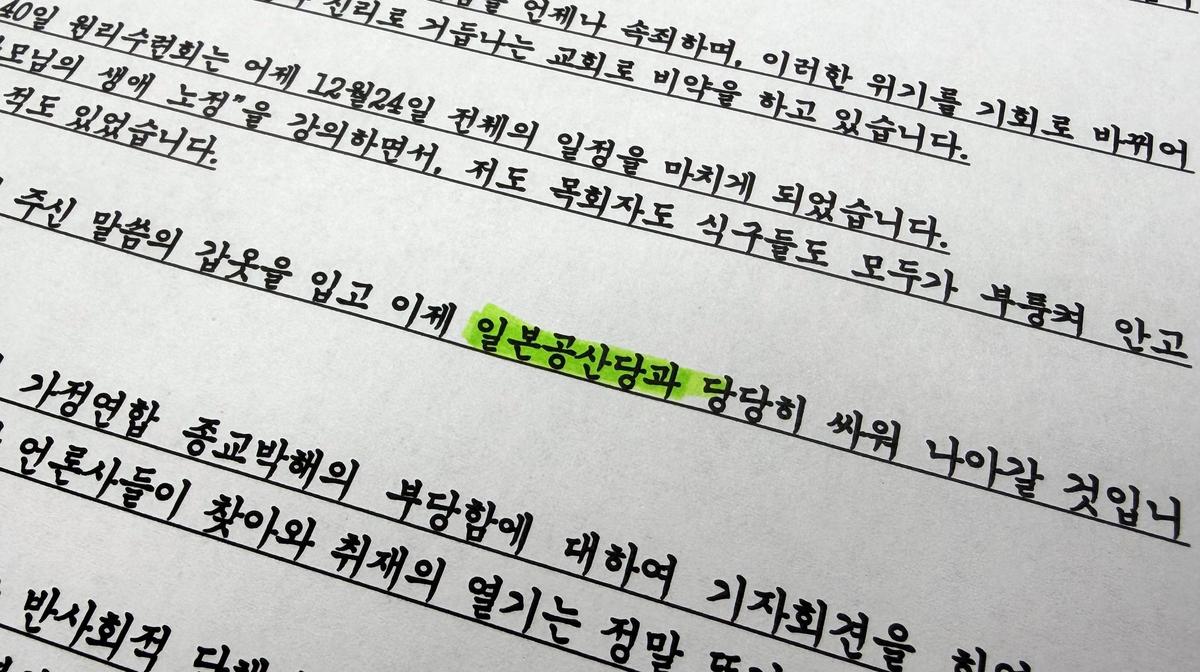 언제나 속죄하며, 이러한 위기를 기회로 바꾸어
진리로 거듭나는 교회로 비약을 하고 있습니다.
40일 원리수련회는 어제 12월24일 전체의 일정을 마치게 되었습니다.
모님의 생애 노정"을 강의하면서, 저도 목회자도 식구들도 모두가 부둥켜 안고
적도 있었습니다.
주신 말씀의 갑옷을 입고 이제 일본공산당과 당당히 싸워 나아갈 것입니
가정연합 종교박해의 부당함에 대하여 기자회견을
언론사들이 찾아와 취재의 열기는 정말
반사회적 단체